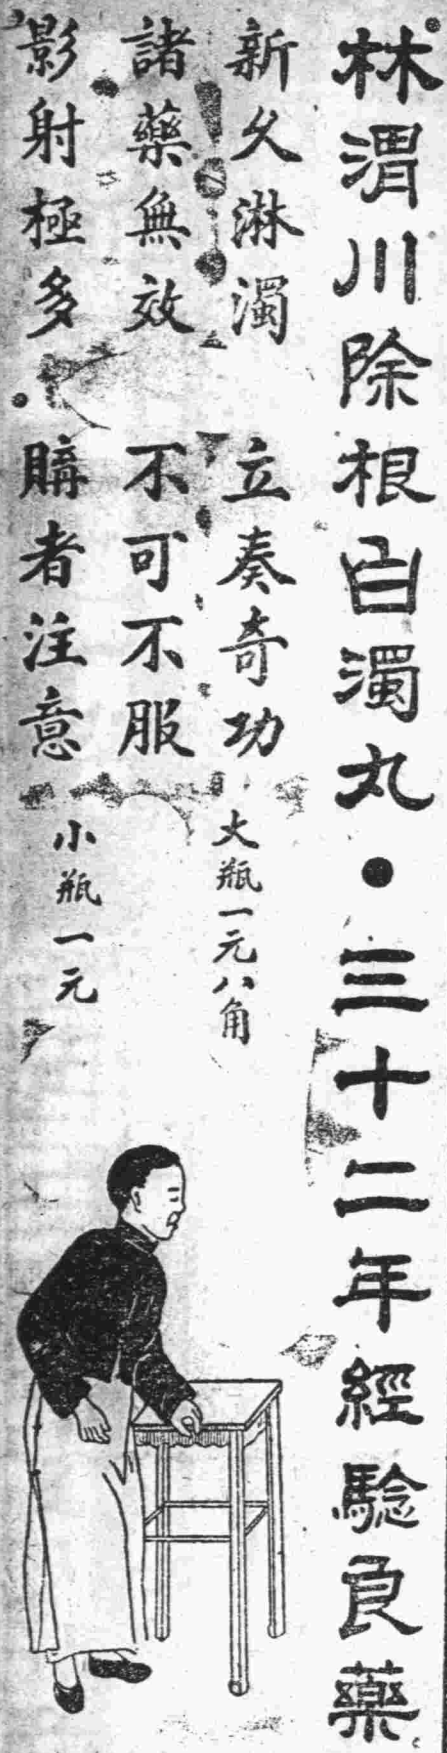 林渭川除根白濁丸●三十二年經驗良藥
新久淋濁　立奏奇功
大瓶一元八角
諸藥無效　不可不服
影射極多　購者注意
小瓶一元